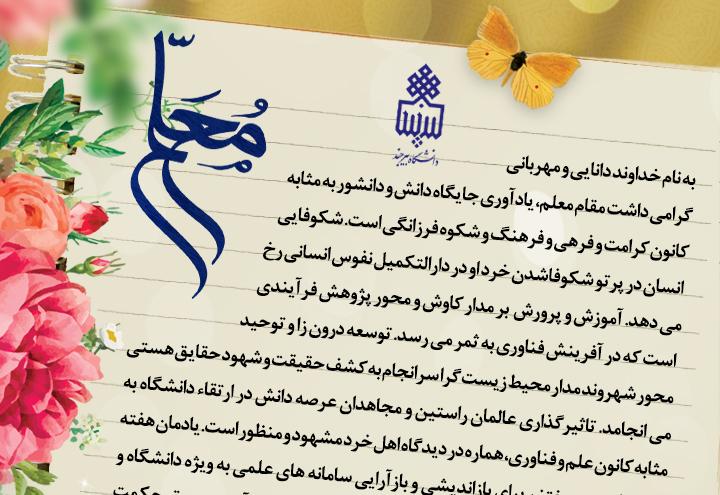 معلم
دانشگاه بیرجند
به نام خداوند دانایی و مهربانی
گرامی داشت مقام معلم، یادآوری جایگاه دانش و دانشور به مثابه
کانون کرامت و فرهی و فرهنگ و شکوه فرزانگی است. شکوفایی
انسان در پرتو شکوفاشدن خرد او در دارالتکمیل نفوس انسانی رخ
می دهد. آموزش و پرورش بر مدار کاوش و محور پژوهش فرآیندی
است که در آفرینش فناوری به ثمر می رسد. توسعه درون زا و توحید
محور شهروندمدار محیط زیست گرا سرانجام به کشف حقیقت و شهود حقایق هستی
می انجامد. تاثیرگذاری عالمان راستین و مجاهدان عرصه دانش در ارتقاء دانشگاه به
مثابه کانون علم و فناوری، هماره در دیدگاه اهل خرد مشهود و منظور است. یادمان هفته
برای بازاندیشی و بازآرایی سامانه های علمی به ویژه دانشگاه و
حکمت